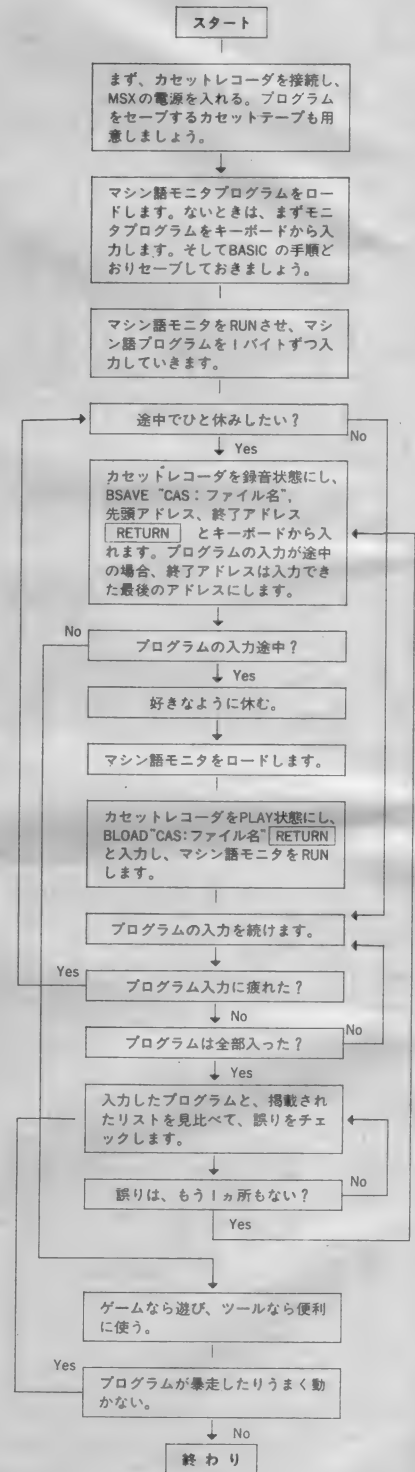 スタート
まず、カセットレコーダを接続し、
MSXの電源を入れる。プログラム
をセーブするカセットテープも用
意しましょう。
マシン語モニタプログラムをロー
ドします。ないときは、まずモニ
タプログラムをキーボードから入
力します。そしてBASIC の手順ど
おりセーブしておきましょう。
マシン語モニタをRUNさせ、マシ
ン語プログラムを1バイトずつ入
力していきます。
途中でひと休みしたい?
No
Yes
カセットレコーダを録音状態にし、
BSAVE "CAS:ファイル名",
先頭アドレス、終了アドレス
RETURN とキーボードから入
れます。プログラムの入力が途中
の場合、終了アドレスは入力でき
た最後のアドレスにします。
No
プログラムの入力途中?
Yes
好きなように休む。
マシン語モニタをロードします。
カセットレコーダをPLAY状態にし、
BLOAD"CAS:ファイル名" RETURN
と入力し、マシン語モニタをRUN
します。
プログラムの入力を続けます。
Yes
プログラム入力に疲れた?
No
プログラムは全部入った?
No
Yes
入力したプログラムと、掲載され
たリストを見比べて、誤りをチェ
ックします。
誤りは、もう1ヵ所もない?
No
Yes
ゲームなら遊び、ツールなら便利
に使う。
Yes
プログラムが暴走したりうまく動
かない。
No
終わり